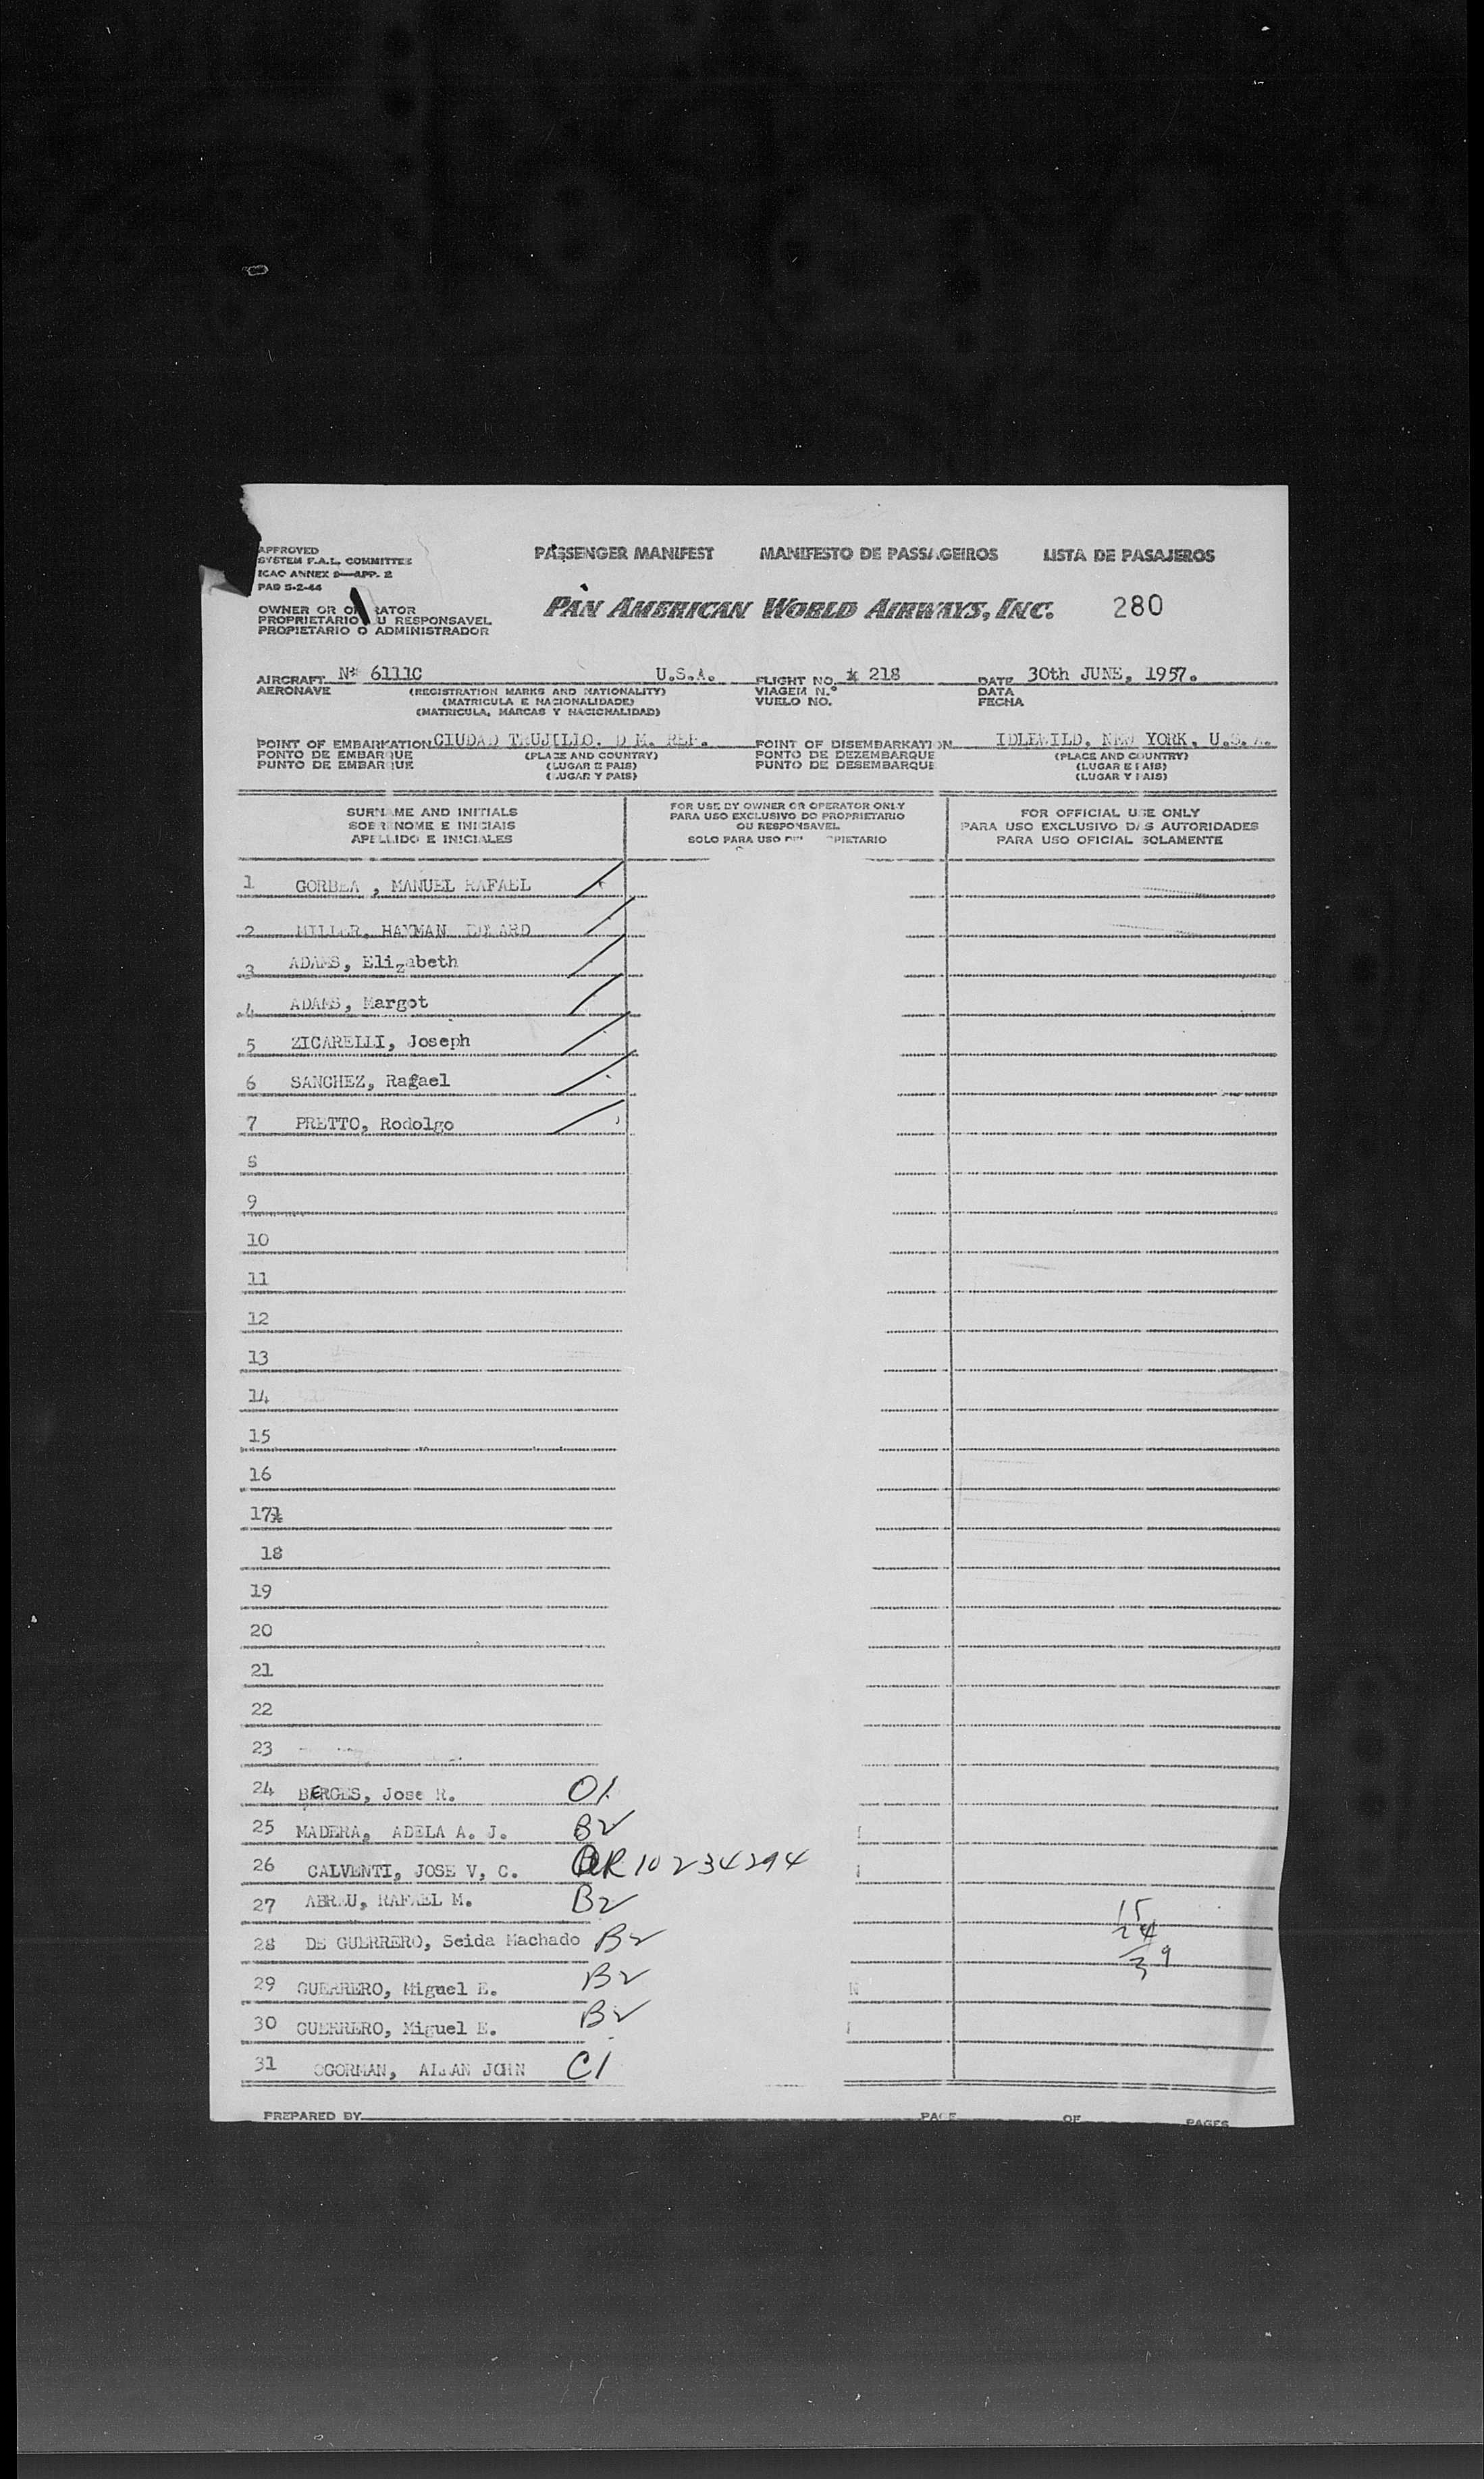 APPROVED
SYSTEM F.A.L. COMMITTEE
ICAO ANNEX 9—APP. 2
PAD 5-2-44
PASSENGER MANIFEST MANIFESTO DE PASSAGEIROS LISTA DE PASAJEROS
PAN AMERICAN WORLD AIRWAYS, INC. 280
OWNER OR OPERATOR
PROPRIETARIO OU RESPONSAVEL
PROPIETARIO O ADMINISTRADOR
AIRCRAFT N* 6111C U.S.A. FLIGHT NO. 218 DATE 30th JUNE, 1957.
AERONAVE (REGISTRATION MARKS AND NATIONALITY) VIAGEM N.º DATA
(MATRICULA E NACIONALIDADE) VUELO NO. FECHA
(MATRICULA, MARCAS Y NACIONALIDAD)
POINT OF EMBARKATION CIUDAD TRUJILLO, D M. REP. POINT OF DISEMBARKATION IDLEWILD, NEW YORK, U.S.A.
PONTO DE EMBARQUE (PLACE AND COUNTRY) PONTO DE DEZEMBARQUE (PLACE AND COUNTRY)
PUNTO DE EMBARQUE (LUGAR E PAIS) PUNTO DE DESEMBARQUE (LUGAR E PAIS)
(LUGAR Y PAIS) (LUGAR Y PAIS)
SURNAME AND INITIALS FOR USE BY OWNER OR OPERATOR ONLY FOR OFFICIAL USE ONLY
SOBRENOME E INICIAIS PARA USO EXCLUSIVO DO PROPRIETARIO PARA USO EXCLUSIVO DAS AUTORIDADES
OU RESPONSAVEL
APELLIDO E INICIALES SOLO PARA USO PIETARIO PARA USO OFICIAL SOLAMENTE
1 GORBEA , MANUEL RAFAEL
2 MILLER, HAYMAN EDWARD
3 ADAMS, Elizabeth
4 ADAMS, Margot
5 ZICARELLI, Joseph
6 SANCHEZ, Ragael
7 PRETTO, Rodolgo
8
9
10
11
12
13
14
15
16
17
18
19
20
21
22
23
24 BERGES, Jose R. O1
25 MADERA, ADELA A. J. B2
26 CALVENTI, JOSE V, C. R 10234294
27 ABREU, RAFAEL M. B2
15
24
28 DE GUERRERO, Seida Machado B2
39
29 GUERRERO, Miguel E. B2
30 GUERRERO, Miguel E. B2
31 OGORMAN, ALLAN JOHN C1
PREPARED BY PAGE OF PAGES